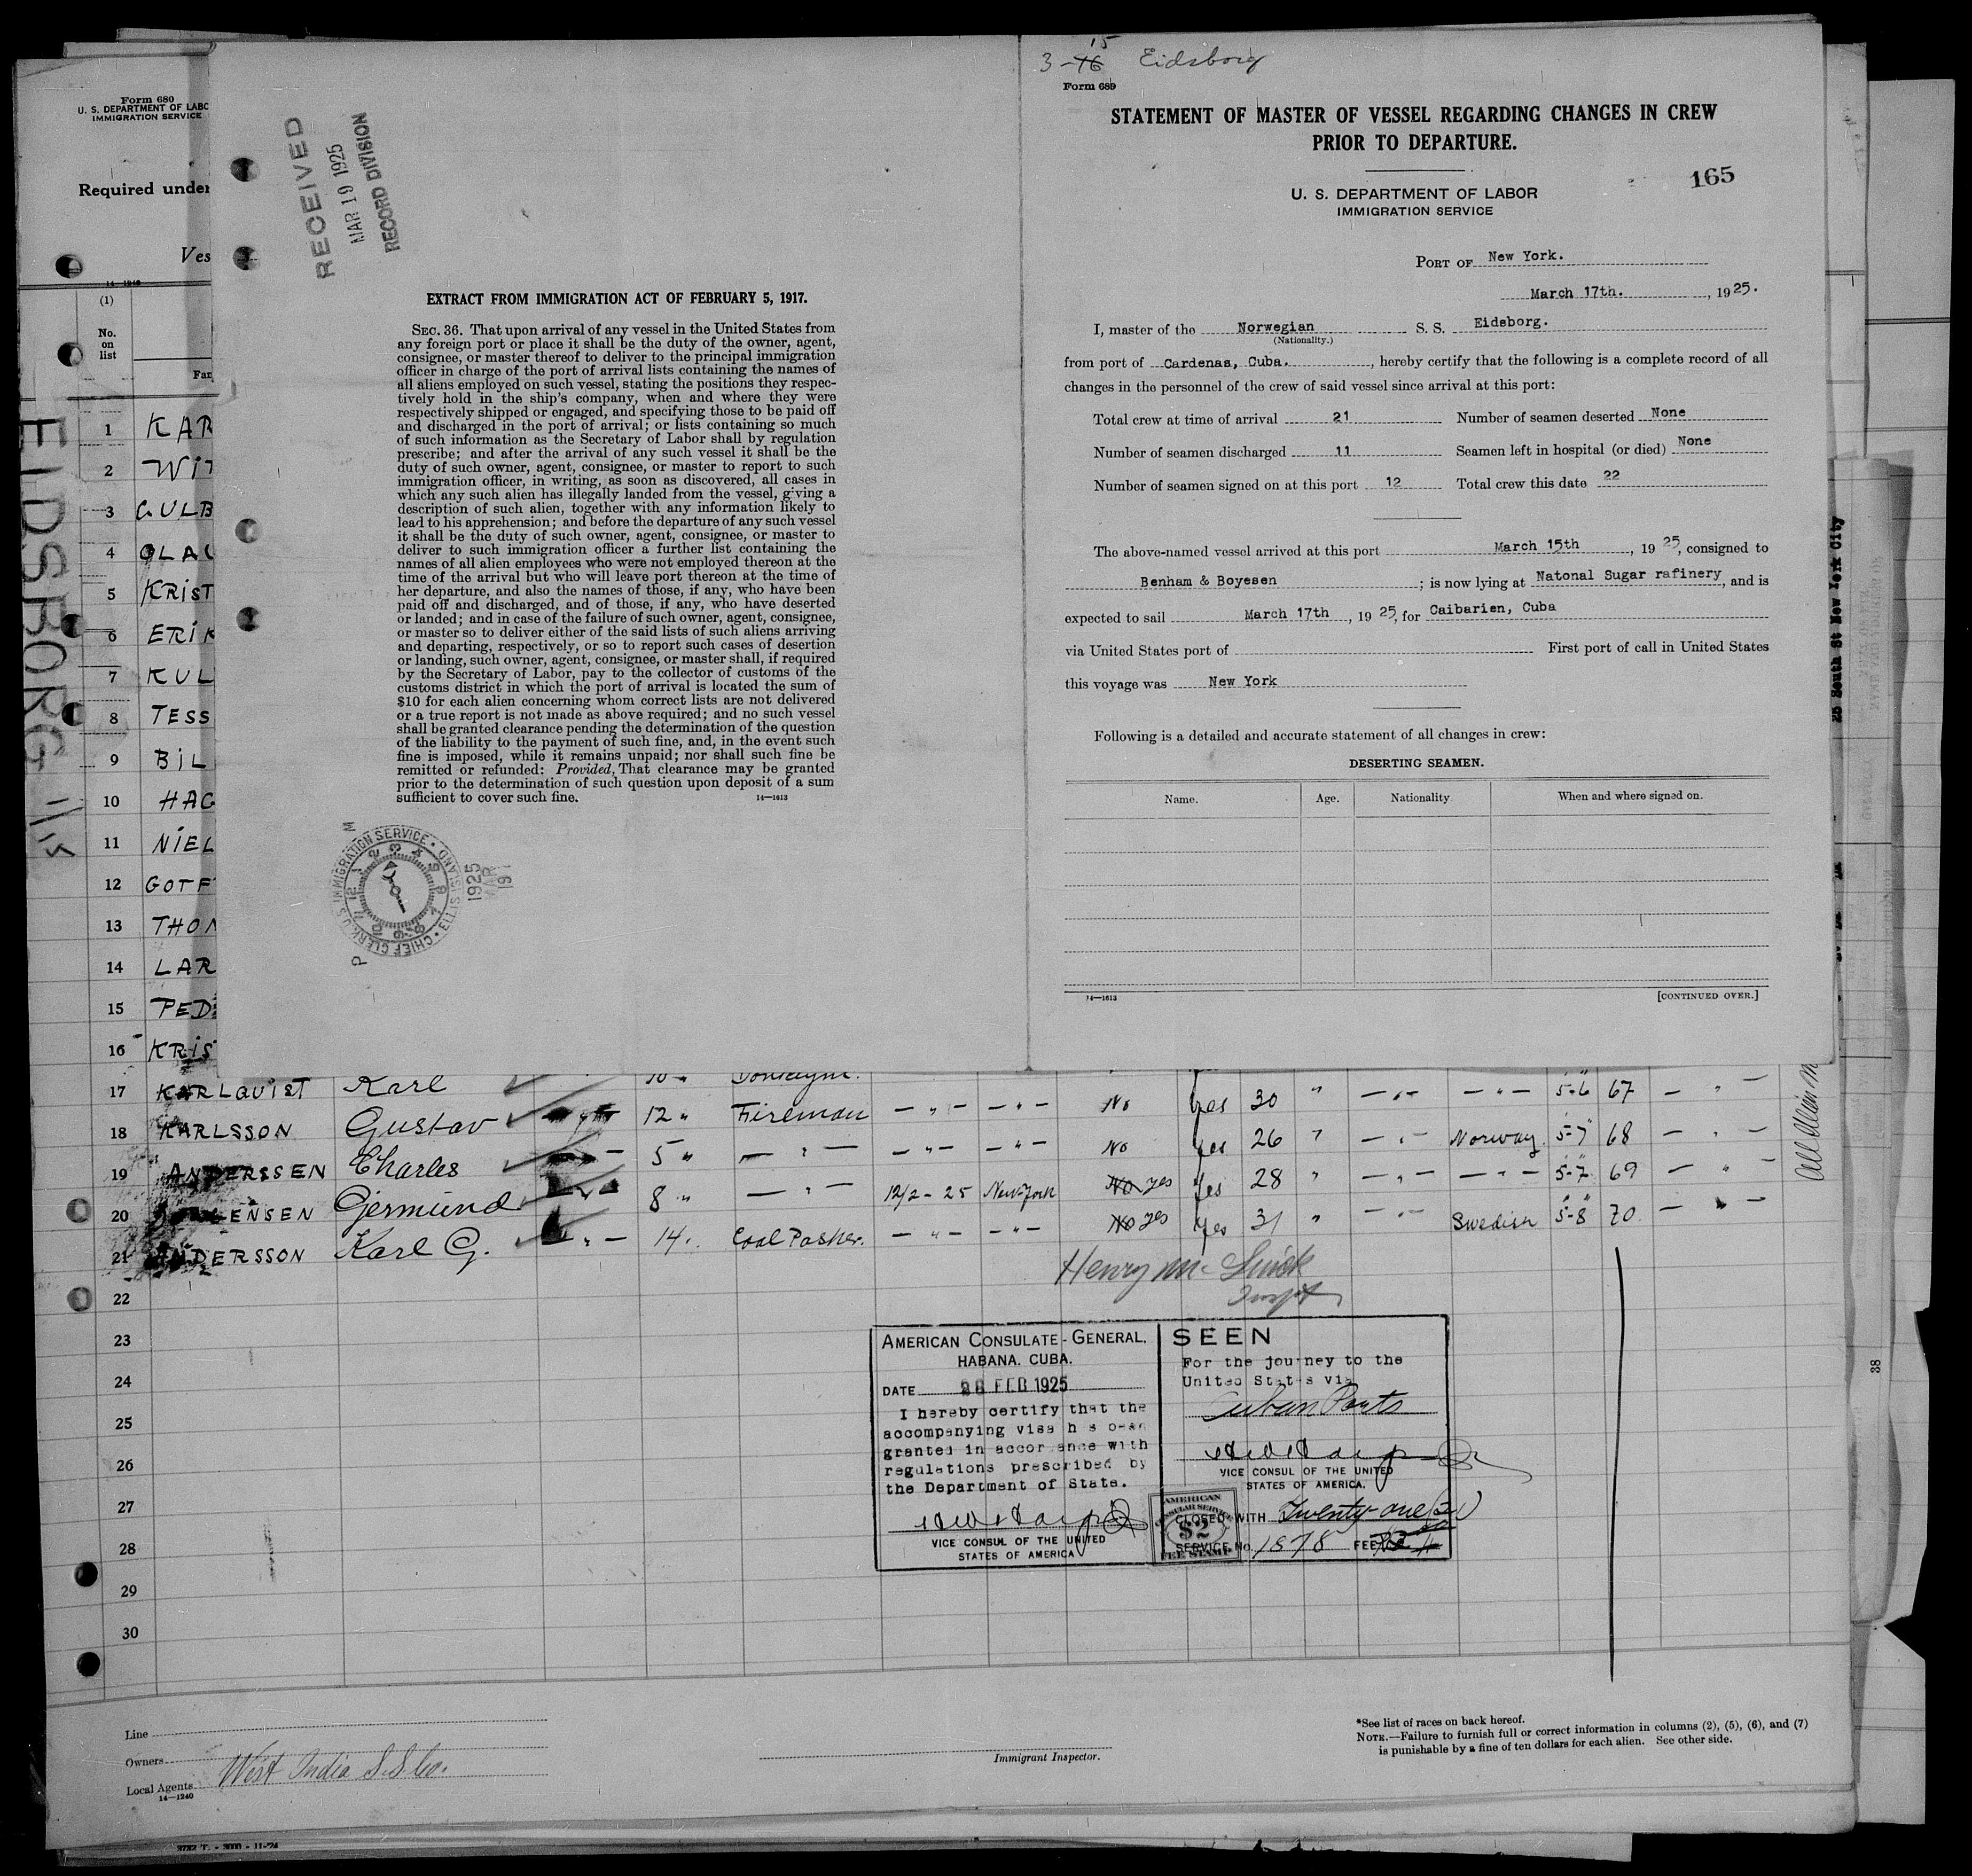 3-16 15 Eidsborg
Form 689
STATEMENT OF MASTER OF VESSEL REGARDING CHANGES IN CREW
PRIOR TO DEPARTURE.
165
U. S. DEPARTMENT OF LABOR
IMMIGRATION SERVICE
PORT OF New York.
March 17th. , 1925.
I, master of the Norwegian S. S. Eidsborg.
(Nationality.)
from port of Cardenas, Cuba. , hereby certify that the following is a complete record of all
changes in the personnel of the crew of said vessel since arrival at this port:
Total crew at time of arrival 21 Number of seamen deserted None
Number of seamen discharged 11 Seamen left in hospital (or died) None
Number of seamen signed on at this port 12 Total crew this date 22
The above-named vessel arrived at this port March 15th , 19 25, consigned to
Benham & Boyesen ; is now lying at Natonal Sugar rafinery , and is
expected to sail March 17th , 19 25, for Caibarien, Cuba
via United States port of First port of call in United States
this voyage was New York
Following is a detailed and accurate statement of all changes in crew:
DESERTING SEAMEN.
Name. Age. Nationality. When and where signed on.
14—1613 [CONTINUED OVER.]
RECEIVED
MAR 19 1925
RECORD DIVISION
EXTRACT FROM IMMIGRATION ACT OF FEBRUARY 5, 1917.
SEC. 36. That upon arrival of any vessel in the United States from
any foreign port or place it shall be the duty of the owner, agent,
consignee, or master thereof to deliver to the principal immigration
officer in charge of the port of arrival lists containing the names of
all aliens employed on such vessel, stating the positions they respec-
tively hold in the ship's company, when and where they were
respectively shipped or engaged, and specifying those to be paid off
and discharged in the port of arrival; or lists containing so much
of such information as the Secretary of Labor shall by regulation
prescribe; and after the arrival of any such vessel it shall be the
duty of such owner, agent, consignee, or master to report to such
immigration officer, in writing, as soon as discovered, all cases in
which any such alien has illegally landed from the vessel, giving a
description of such alien, together with any information likely to
lead to his apprehension; and before the departure of any such vessel
it shall be the duty of such owner, agent, consignee, or master to
deliver to such immigration officer a further list containing the
names of all alien employees who were not employed thereon at the
time of the arrival but who will leave port thereon at the time of
her departure, and also the names of those, if any, who have been
paid off and discharged, and of those, if any, who have deserted
or landed; and in case of the failure of such owner, agent, consignee,
or master so to deliver either of the said lists of such aliens arriving
and departing, respectively, or so to report such cases of desertion
or landing, such owner, agent, consignee, or master shall, if required
by the Secretary of Labor, pay to the collector of customs of the
customs district in which the port of arrival is located the sum of
$10 for each alien concerning whom correct lists are not delivered
or a true report is not made as above required; and no such vessel
shall be granted clearance pending the determination of the question
of the liability to the payment of such fine, and, in the event such
fine is imposed, while it remains unpaid; nor shall such fine be
remitted or refunded: Provided, That clearance may be granted
prior to the determination of such question upon deposit of a sum
sufficient to cover such fine. 14—1613
U.S. IMMIGRATION SERVICE
ELLIS ISLAND
CHIEF CLERK
1925
MAR
19
Form 680
U. S. DEPARTMENT OF LABO
IMMIGRATION SERVICE
Required under
Ves
14—1240
(1)
No.
on
list
Fam
EIDSBORG
1 KAR
2 WIT
3 GULB
4 OLAU
5 KRIST
6 ERIK
7 KUL
8 TESS
9 BIL
10 HAG
11 NIEL
12 GOTF
13 THOM
14 LAR
15 PED
16 KRIS
17 KARLQUIST Karl 10 " Donkeym. No Yes 30 " 5-6 67
18 KARLSSON Gustav 12 " Fireman No Yes 26 " Norway 5-7 68
19 ANDERSSEN Charles 5 " No yes Yes 28 " 5-7 69
20 ENSEN Gjermund 8 " 12/2-25 New-York No yes Yes 31 " Swedish 5-8 70
21 ANDERSSON Karl G. 14 " Coal Passer.
22
23
24
25
26
27
28
29
30
AMERICAN CONSULATE-GENERAL,
HABANA, CUBA.
DATE 28 FEB 1925
I hereby certify that the
accompanying visa has been
granted in accordance with
regulations prescribed by
the Department of State.
VICE CONSUL OF THE UNITED
STATES OF AMERICA
SEEN
For the journey to the
United States via
Cuban Ports
VICE CONSUL OF THE UNITED
STATES OF AMERICA.
CLOSED WITH Twenty-one (21)
SERVICE No. 1878 FEE
AMERICAN
CONSULAR SERVICE
$2
FEE STAMP
Line
Owners
Local Agents West India S.S Co.
14—1240
Immigrant Inspector.
*See list of races on back hereof.
NOTE.—Failure to furnish full or correct information in columns (2), (5), (6), and (7)
is punishable by a fine of ten dollars for each alien. See other side.
25 South St New York City
38